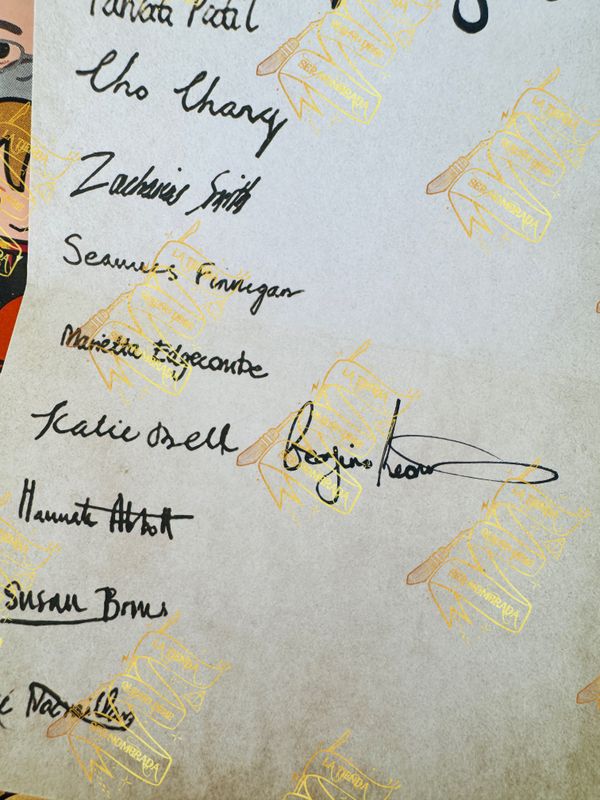 Patil
Cho Chang
Zacharias Smith
Seamus Finnigan
Marietta Edgecombe
Katie Bell
Hannah Abbott
Susan Bones
LA TIENDA
SER NOMBRADA